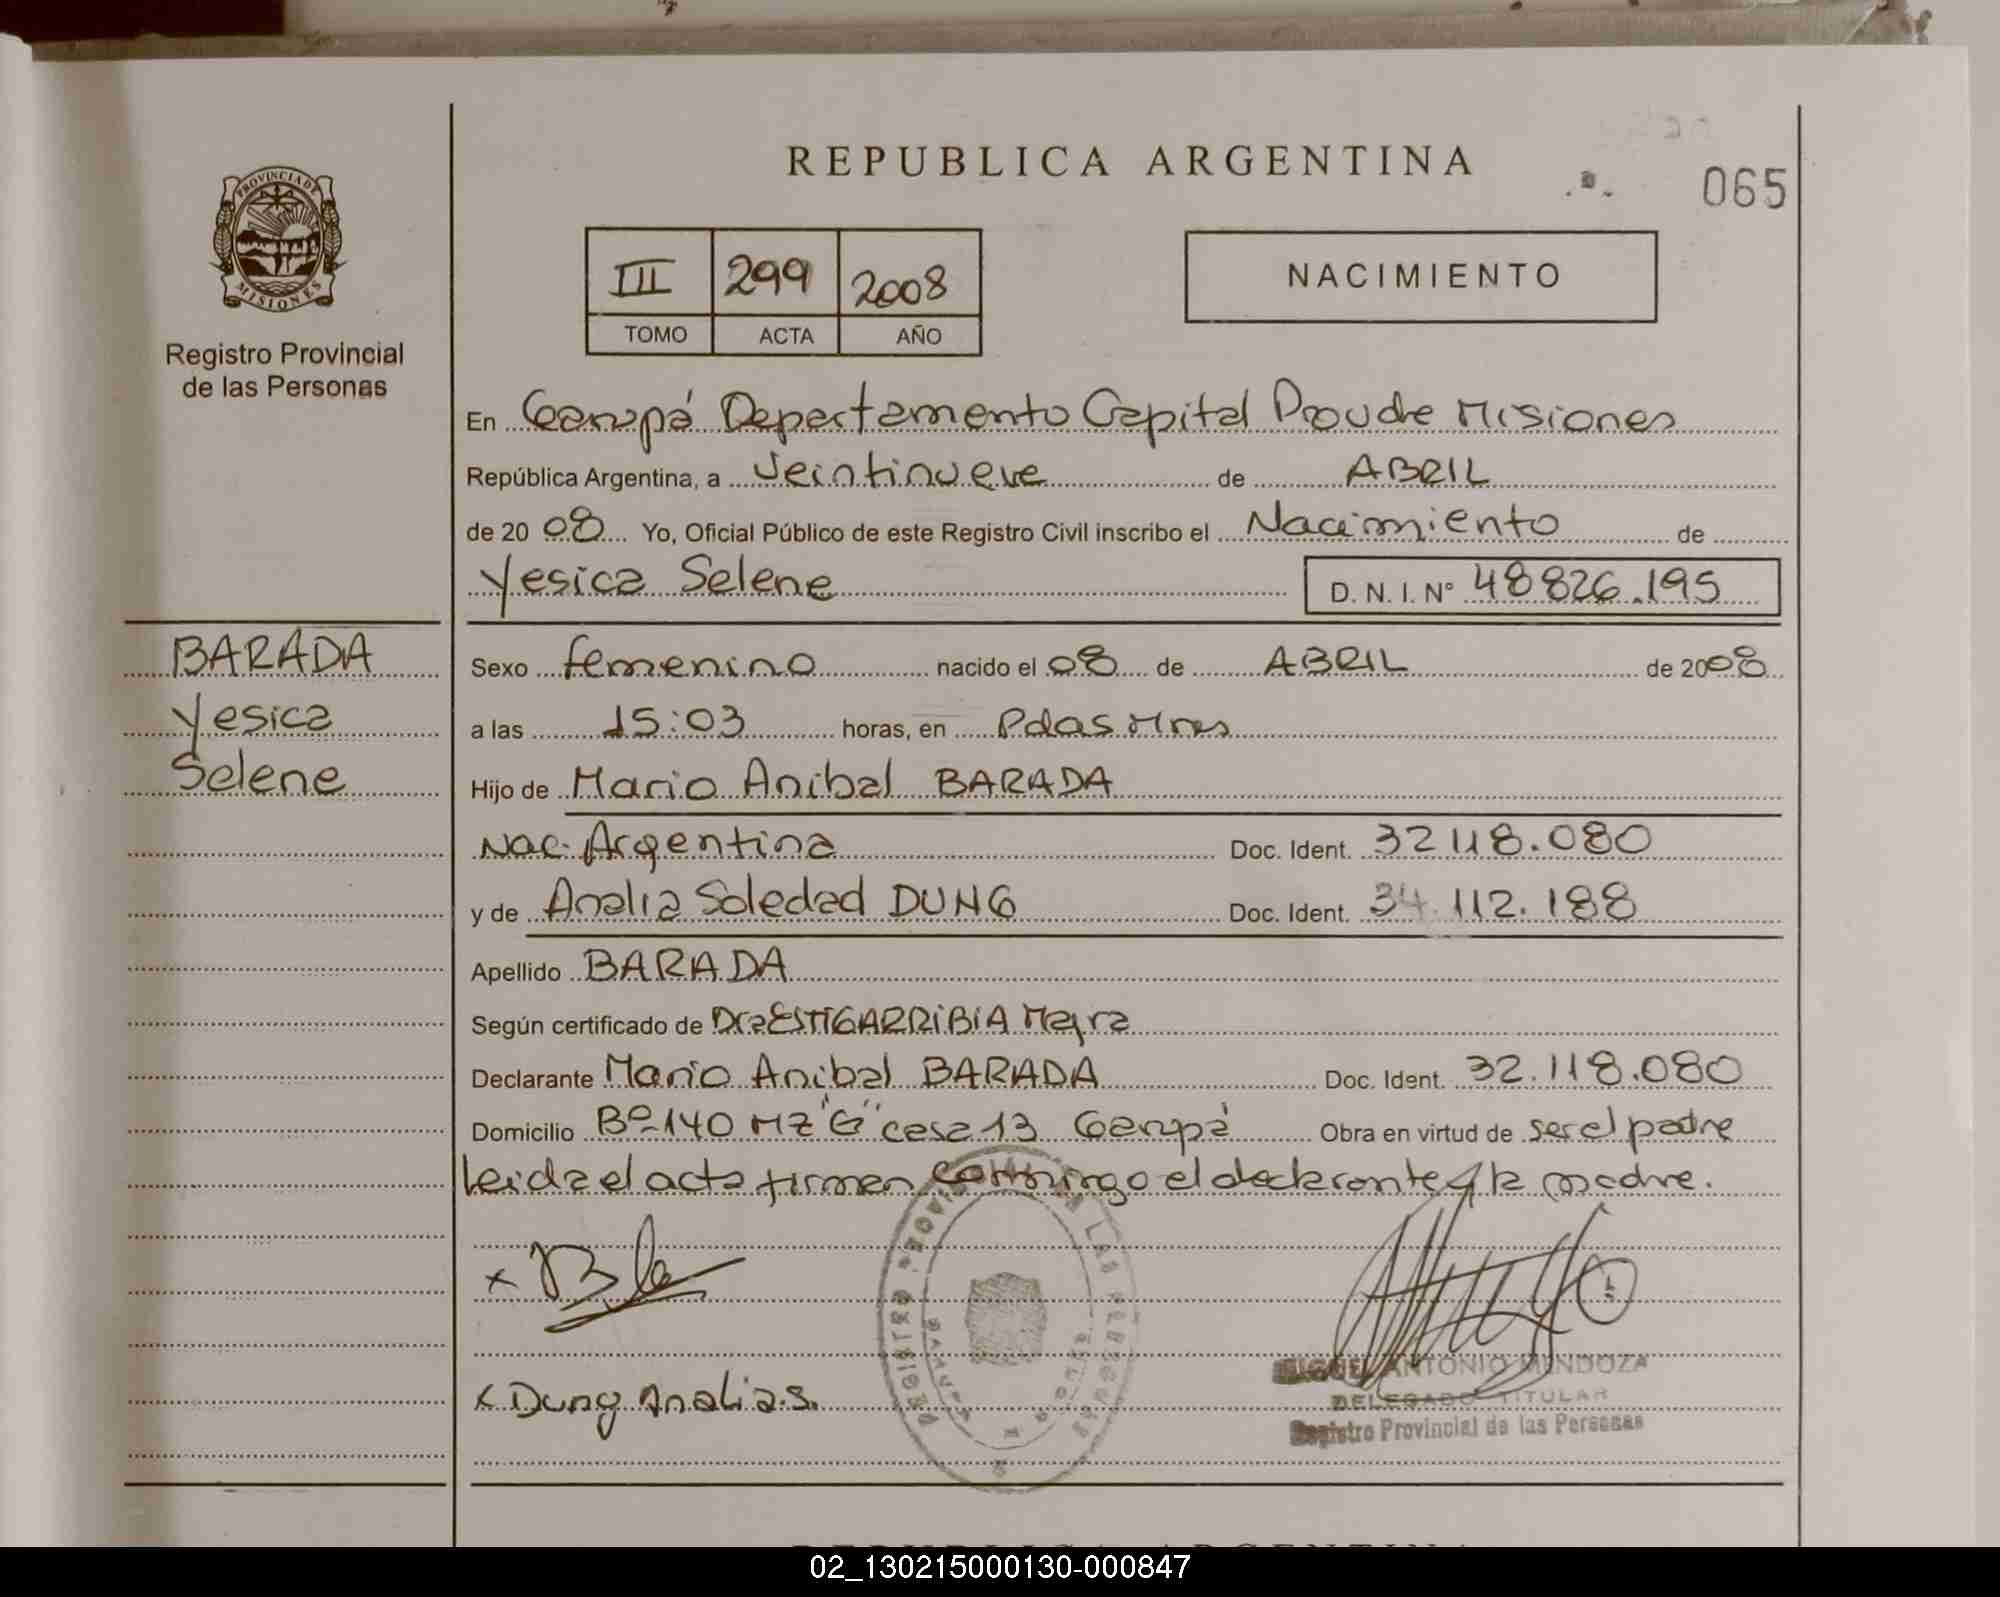 REPUBLICA ARGENTINA
065
PROVINCIA DE
MISIONES
Registro Provincial
de las Personas
III 299 2008
TOMO ACTA AÑO
NACIMIENTO
En Garupá Departamento Capital Prov de Misiones
República Argentina, a Veintinueve de ABRIL
de 2008 Yo, Oficial Público de este Registro Civil inscribo el Nacimiento de
Yesica Selene D. N. I. Nº 48826.195
BARADA
Yesica
Selene
Sexo femenino nacido el 08 de ABRIL de 2008
a las 15:03 horas, en Pdas Mnes
Hijo de Mario Anibal BARADA
Nac. Argentina Doc. Ident. 32118.080
y de Analia Soledad DUNG Doc. Ident. 34.112.188
Apellido BARADA
Según certificado de Dra ESTIGARRIBIA
Declarante Mario Anibal BARADA Doc. Ident. 32.118.080
Domicilio Bº 140 MZ "G" casa 13 Garupá Obra en virtud de ser el padre
Leida el acta firman conmigo el declarante y la madre.
x
x Dung Analia.s.
REGISTRO PROVINCIAL DE LAS PERSONAS
GARUPA
MIGUEL ANTONIO MENDOZA
DELEGADO TITULAR
Registro Provincial de las Personas
REPUBLICA ARGENTINA
02_130215000130-000847